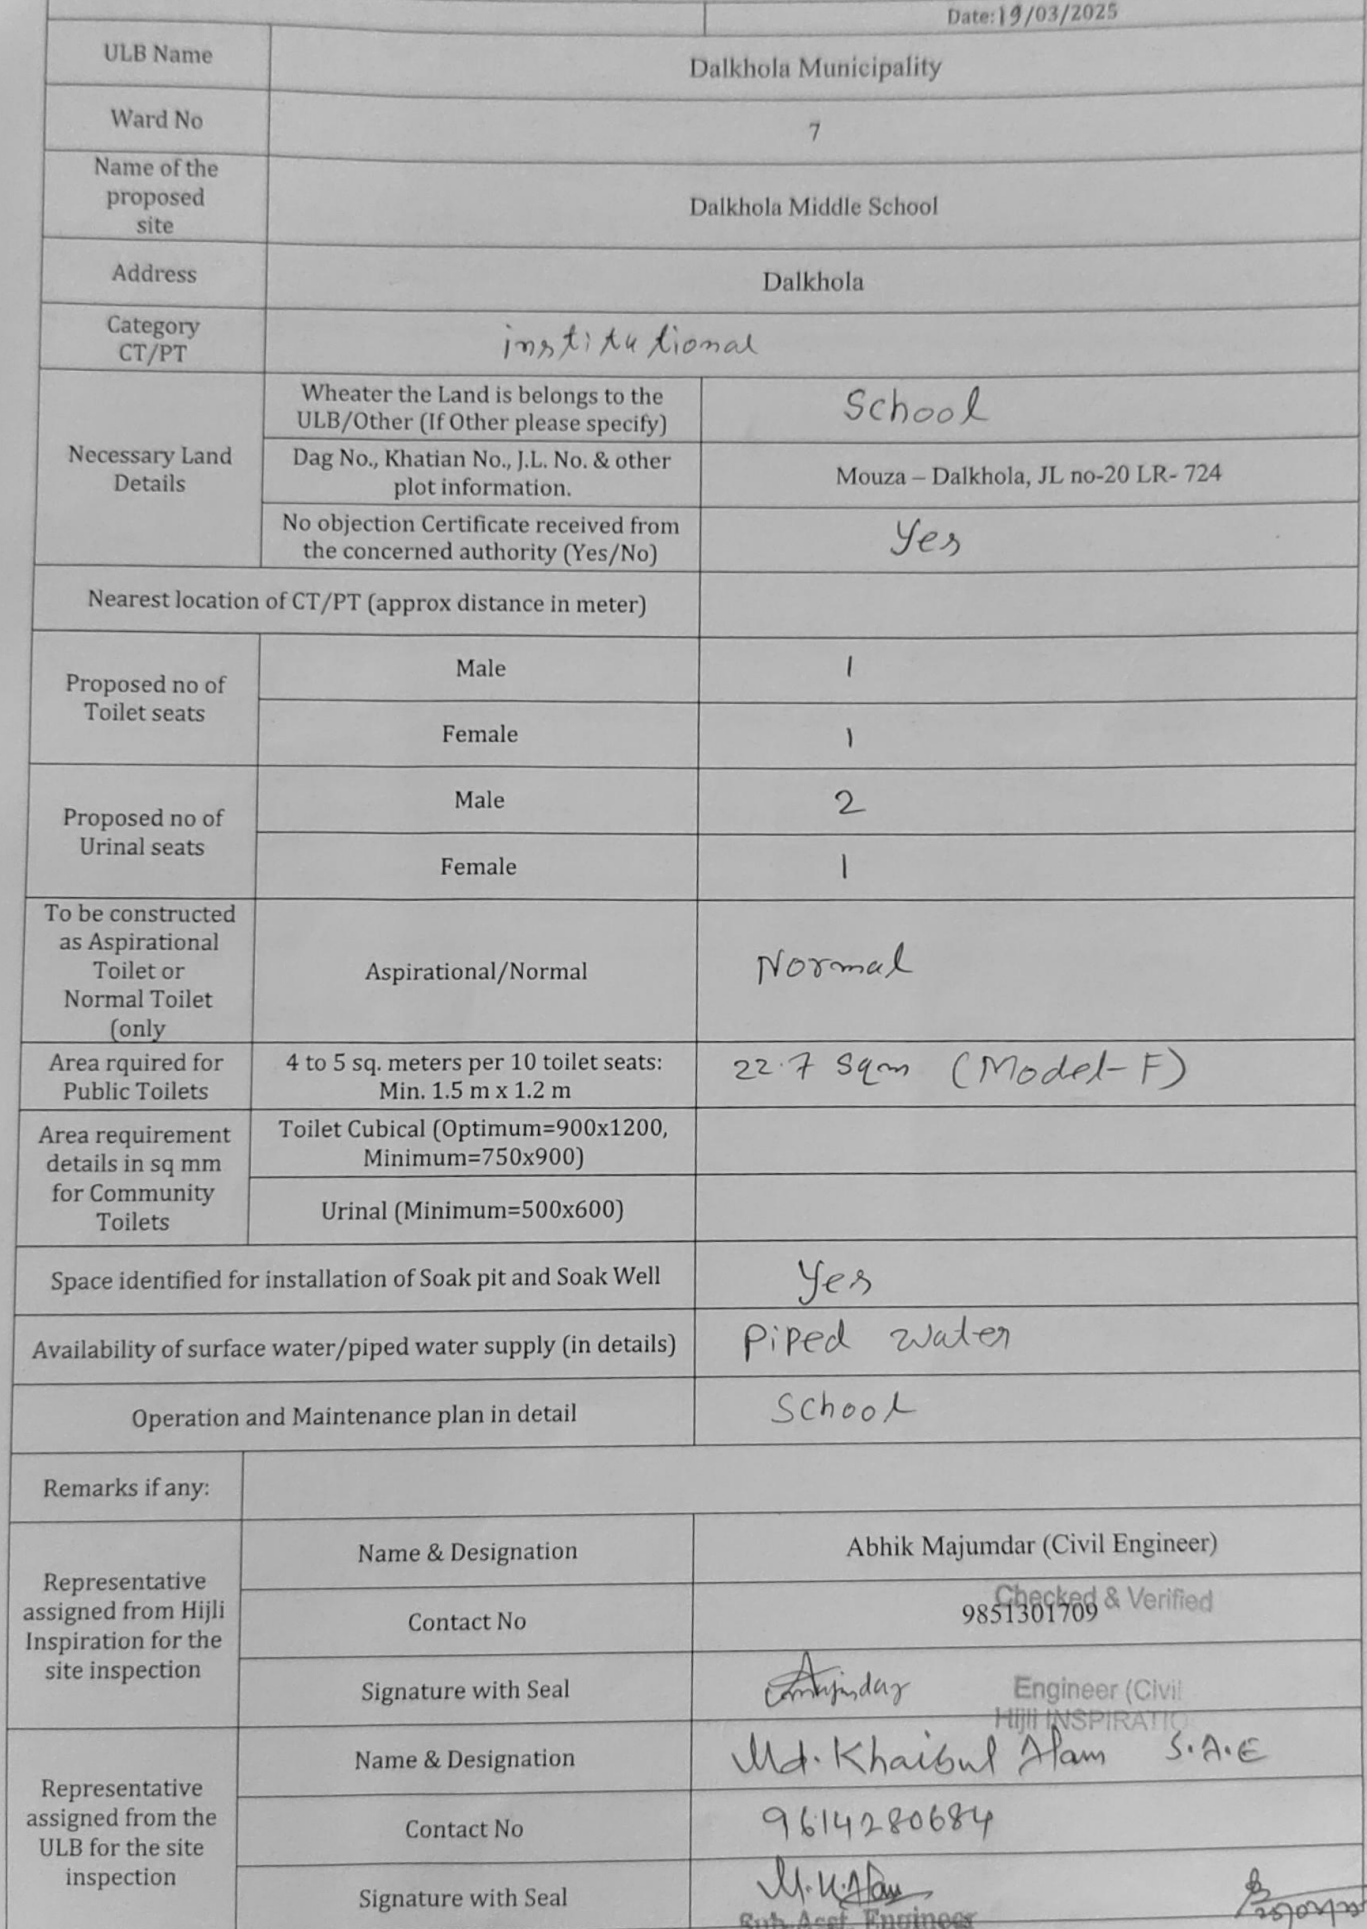 Date: 19/03/2025
ULB Name
Dalkhola Municipality
Ward No
7
Name of the
proposed
site
Dalkhola Middle School
Address
Dalkhola
Category
CT/PT
institutional
Necessary Land
Details
Wheater the Land is belongs to the
ULB/Other (If Other please specify)
School
Dag No., Khatian No., J.L. No. & other
plot information.
Mouza – Dalkhola, JL no-20 LR- 724
No objection Certificate received from
the concerned authority (Yes/No)
Yes
Nearest location of CT/PT (approx distance in meter)
Proposed no of
Toilet seats
Male
1
Female
1
Proposed no of
Urinal seats
Male
2
Female
1
To be constructed
as Aspirational
Toilet or
Normal Toilet
(only
Aspirational/Normal
Normal
Area rquired for
Public Toilets
4 to 5 sq. meters per 10 toilet seats:
Min. 1.5 m x 1.2 m
22.7 Sqm (Model-F)
Area requirement
details in sq mm
for Community
Toilets
Toilet Cubical (Optimum=900x1200,
Minimum=750x900)
Urinal (Minimum=500x600)
Space identified for installation of Soak pit and Soak Well
Yes
Availability of surface water/piped water supply (in details)
Piped water
Operation and Maintenance plan in detail
School
Remarks if any:
Representative
assigned from Hijli
Inspiration for the
site inspection
Name & Designation
Abhik Majumdar (Civil Engineer)
Contact No
Checked & Verified
9851301709
Signature with Seal
Engineer (Civil
Hijli INSPIRATIO
Representative
assigned from the
ULB for the site
inspection
Name & Designation
Md. Khaibul Alam S.A.E
Contact No
9614280684
Signature with Seal
M.K.Alam
Sub Asst. Engineer